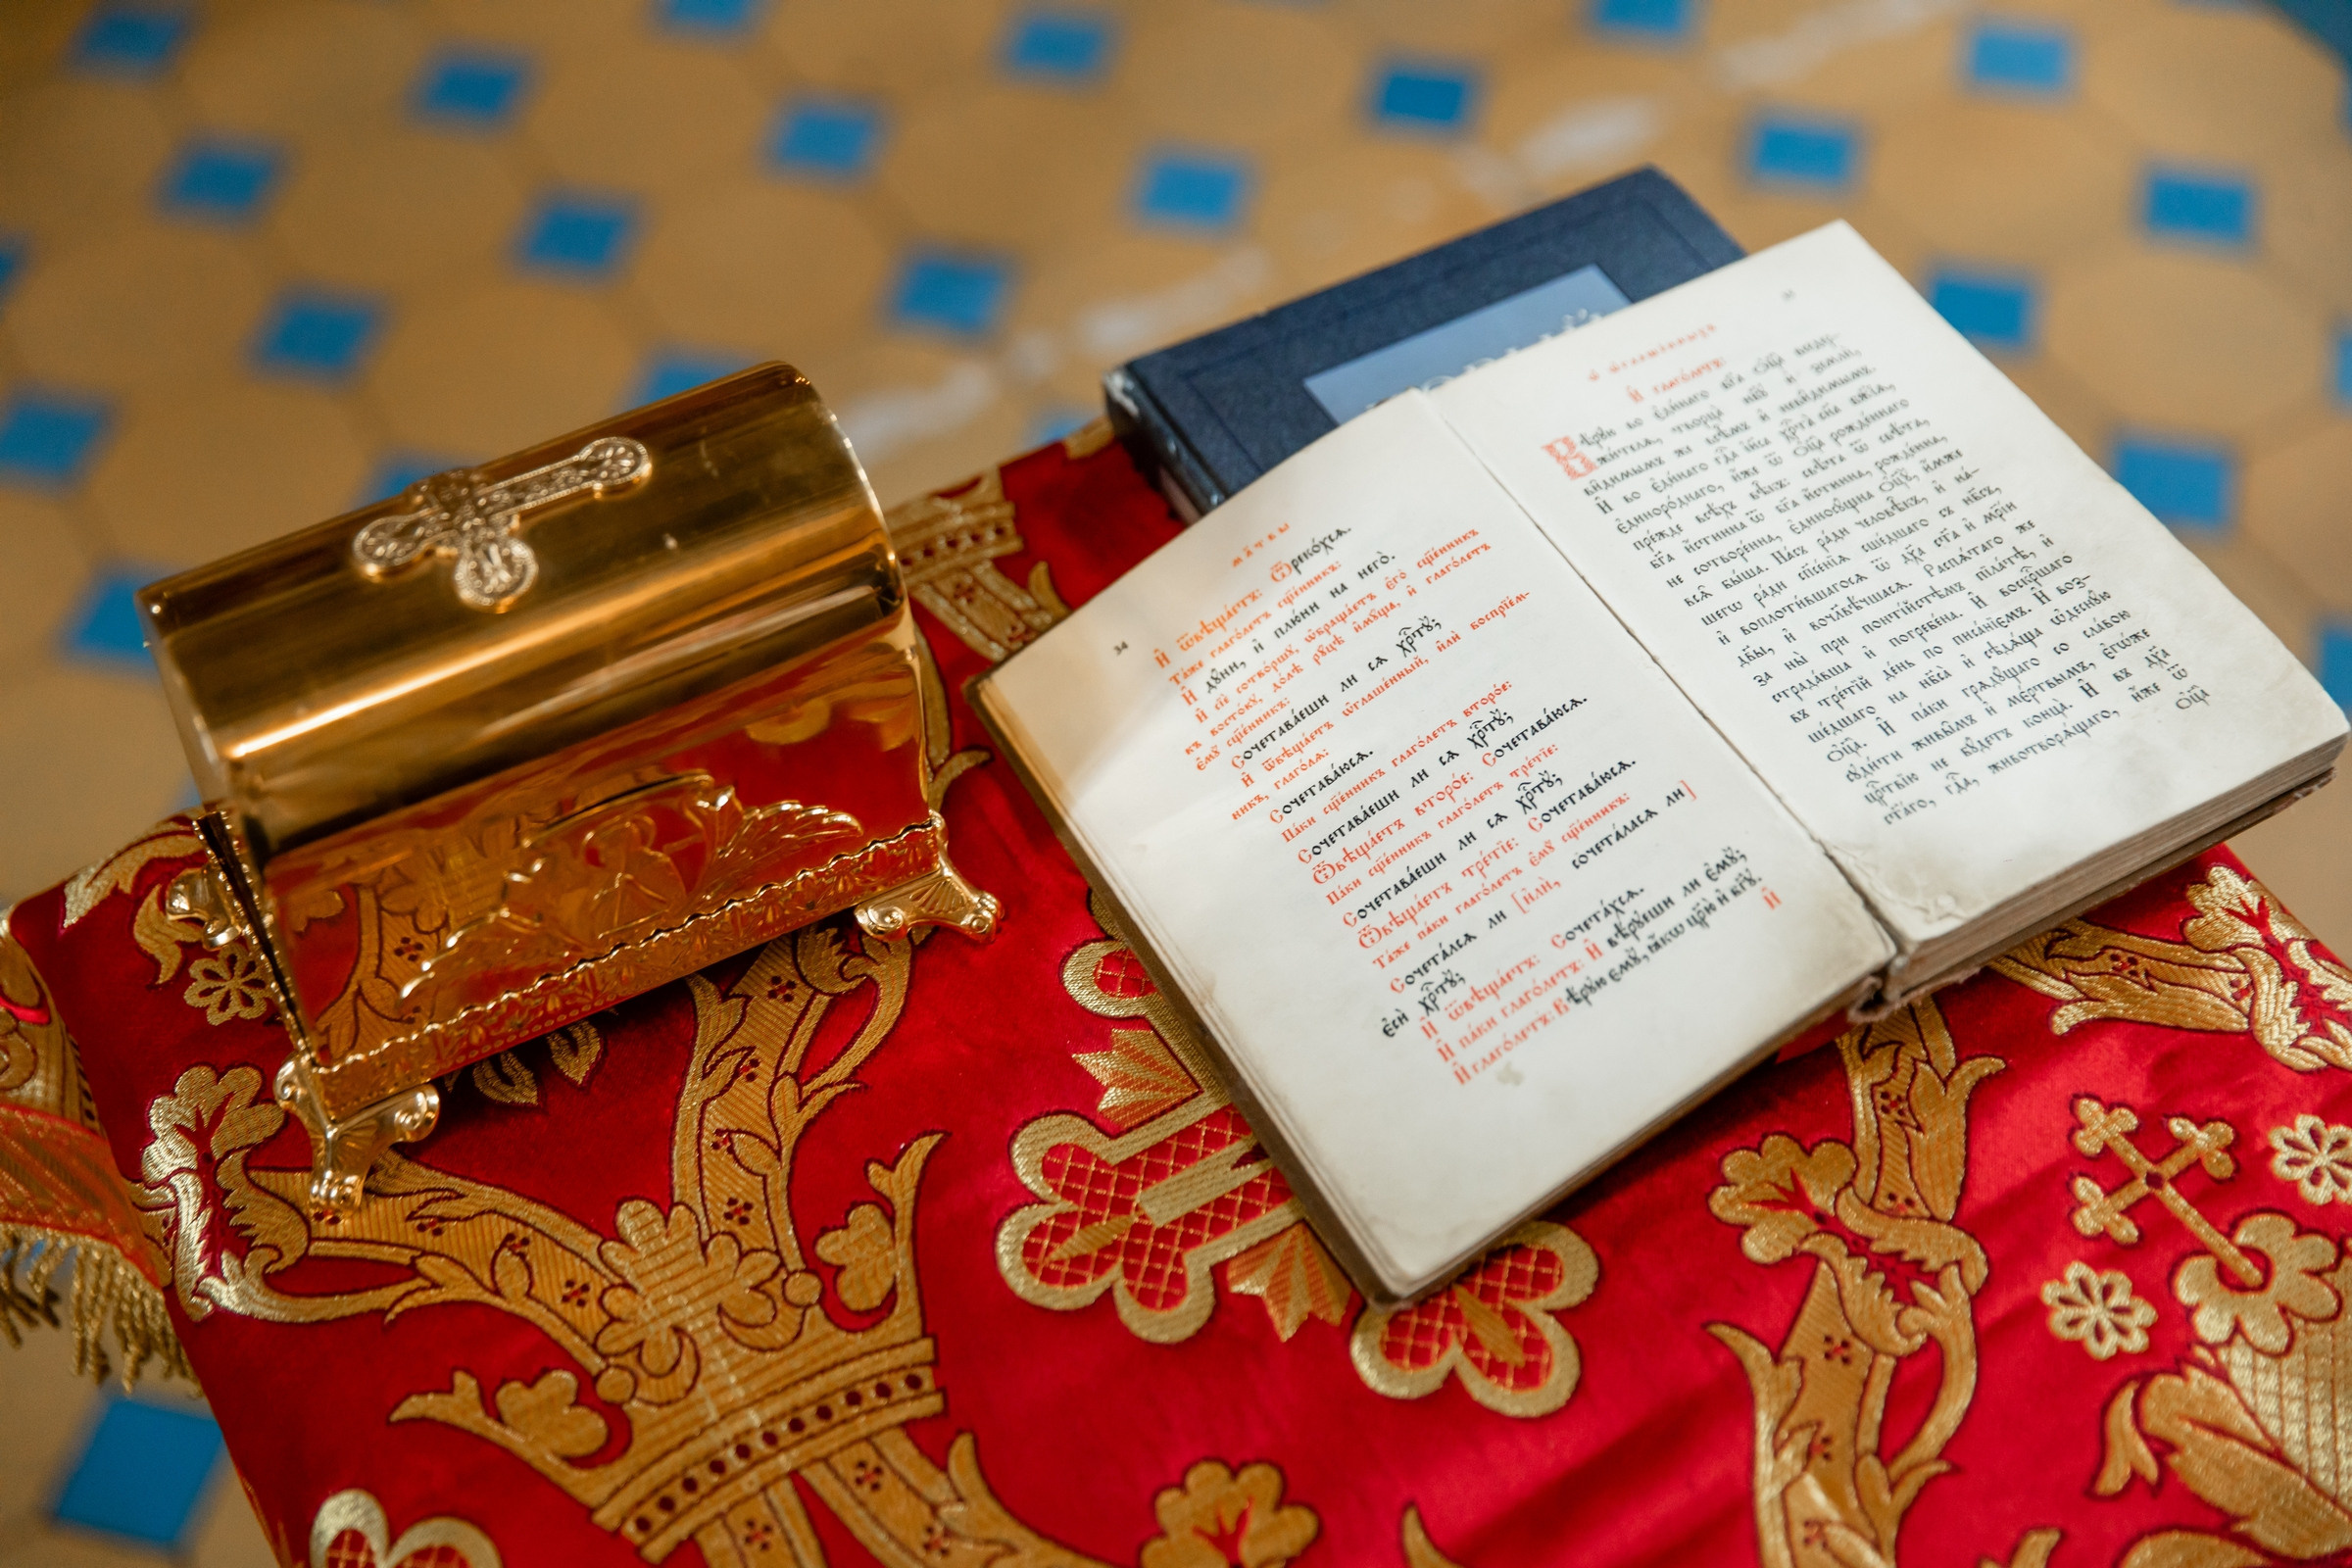 34
мл҃твы
И҆ ѿвѣща́етъ: Ѿреко́хсѧ.
Та́же глаго́летъ сщ҃е́нникъ:
И҆ дꙋ́ни, и҆ плю́ни на него̀.
И҆ сїѐ сотво́ршꙋ, ѡ҆браща́етъ є҆го̀ сщ҃е́нникъ
къ восто́кꙋ, до́лѣ рꙋ́цѣ и҆мꙋ́ща, и҆ глаго́летъ
є҆мꙋ̀ сщ҃е́нникъ:
Сочетава́еши ли сѧ хрⷭ҇тꙋ̀;
И҆ ѿвѣща́етъ ѡ҆глаше́нный, и҆лѝ воспрїе́м-
никъ, глаго́лѧ:
Сочетава́юсѧ.
Па́ки сщ҃е́нникъ глаго́летъ второ́е:
Сочетава́еши ли сѧ хрⷭ҇тꙋ̀;
Ѿвѣща́етъ второ́е: Сочетава́юсѧ.
Па́ки сщ҃е́нникъ глаго́летъ тре́тїе:
Сочетава́еши ли сѧ хрⷭ҇тꙋ̀;
Ѿвѣща́етъ тре́тїе: Сочетава́юсѧ.
Та́же па́ки глаго́летъ є҆мꙋ̀ сщ҃е́нникъ:
Сочета́лсѧ ли [и҆лѝ, сочета́ласѧ ли]
є҆сѝ хрⷭ҇тꙋ̀;
И҆ ѿвѣща́етъ: Сочета́хсѧ.
И҆ па́ки глаго́летъ: И҆ вѣ́рꙋеши ли є҆мꙋ̀;
И҆ глаго́летъ: Вѣ́рꙋю є҆мꙋ̀, ꙗ҆́кѡ цр҃ю̀ и҆ бг҃ꙋ.
И҆
И҆ глаго́летъ:
Вѣ́рꙋю во є҆ди́наго бг҃а ѻ҆ц҃а̀ вседер-
жи́телѧ, творца̀ нб҃ꙋ̀ и҆ землѝ,
ви́димымъ же всѣ̑мъ и҆ неви́димымъ.
И҆ во є҆ди́наго гдⷭ҇а і҆и҃са хрⷭ҇та̀ сн҃а бж҃їѧ,
є҆диноро́днаго, и҆́же ѿ ѻ҆ц҃а̀ рожде́ннаго
пре́жде всѣ́хъ вѣ̑къ: свѣ́та ѿ свѣ́та,
бг҃а и҆́стинна ѿ бг҃а и҆́стинна, рожде́нна,
не сотворе́нна, є҆диносꙋ́щна ѻ҆ц҃ꙋ̀, и҆́мже
всѧ̑ бы́ша. На́съ ра́ди человѣ̑къ, и҆ на́-
шегѡ ра́ди сп҃се́нїѧ сше́дшаго съ нб҃съ,
и҆ воплоти́вшагосѧ ѿ дх҃а ст҃а и҆ мр҃і́и
дв҃ы, и҆ вочл҃вѣ́чшасѧ. Распѧ́таго же
за ны̀ при понті́йстѣмъ пїла́тѣ, и҆
страда́вша и҆ погребе́на. И҆ воскре́сшаго
въ тре́тїй де́нь по писа́нїємъ. И҆ воз-
ше́дшаго на нб҃са̀ и҆ сѣдѧ́ща ѡ҆деснꙋ́ю
ѻ҆ц҃а̀. И҆ па́ки грѧдꙋ́щаго со сла́вою
сꙋди́ти живы̑мъ и҆ мє́ртвымъ, є҆гѡ́же
црⷭ҇твїю не бꙋ́детъ конца̀. И҆ въ дх҃а
ст҃а́го, гдⷭ҇а, животворѧ́щаго, и҆́же ѿ
ѻ҆ц҃а̀